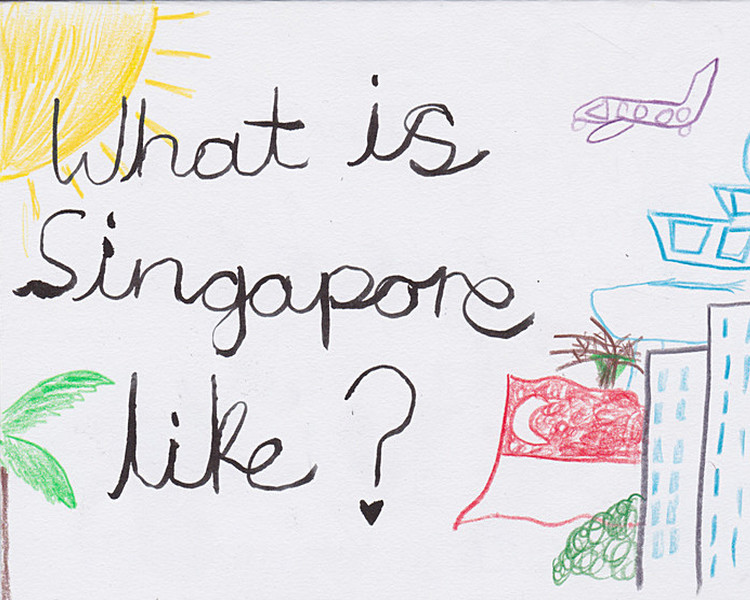 What is
Singapore
like?